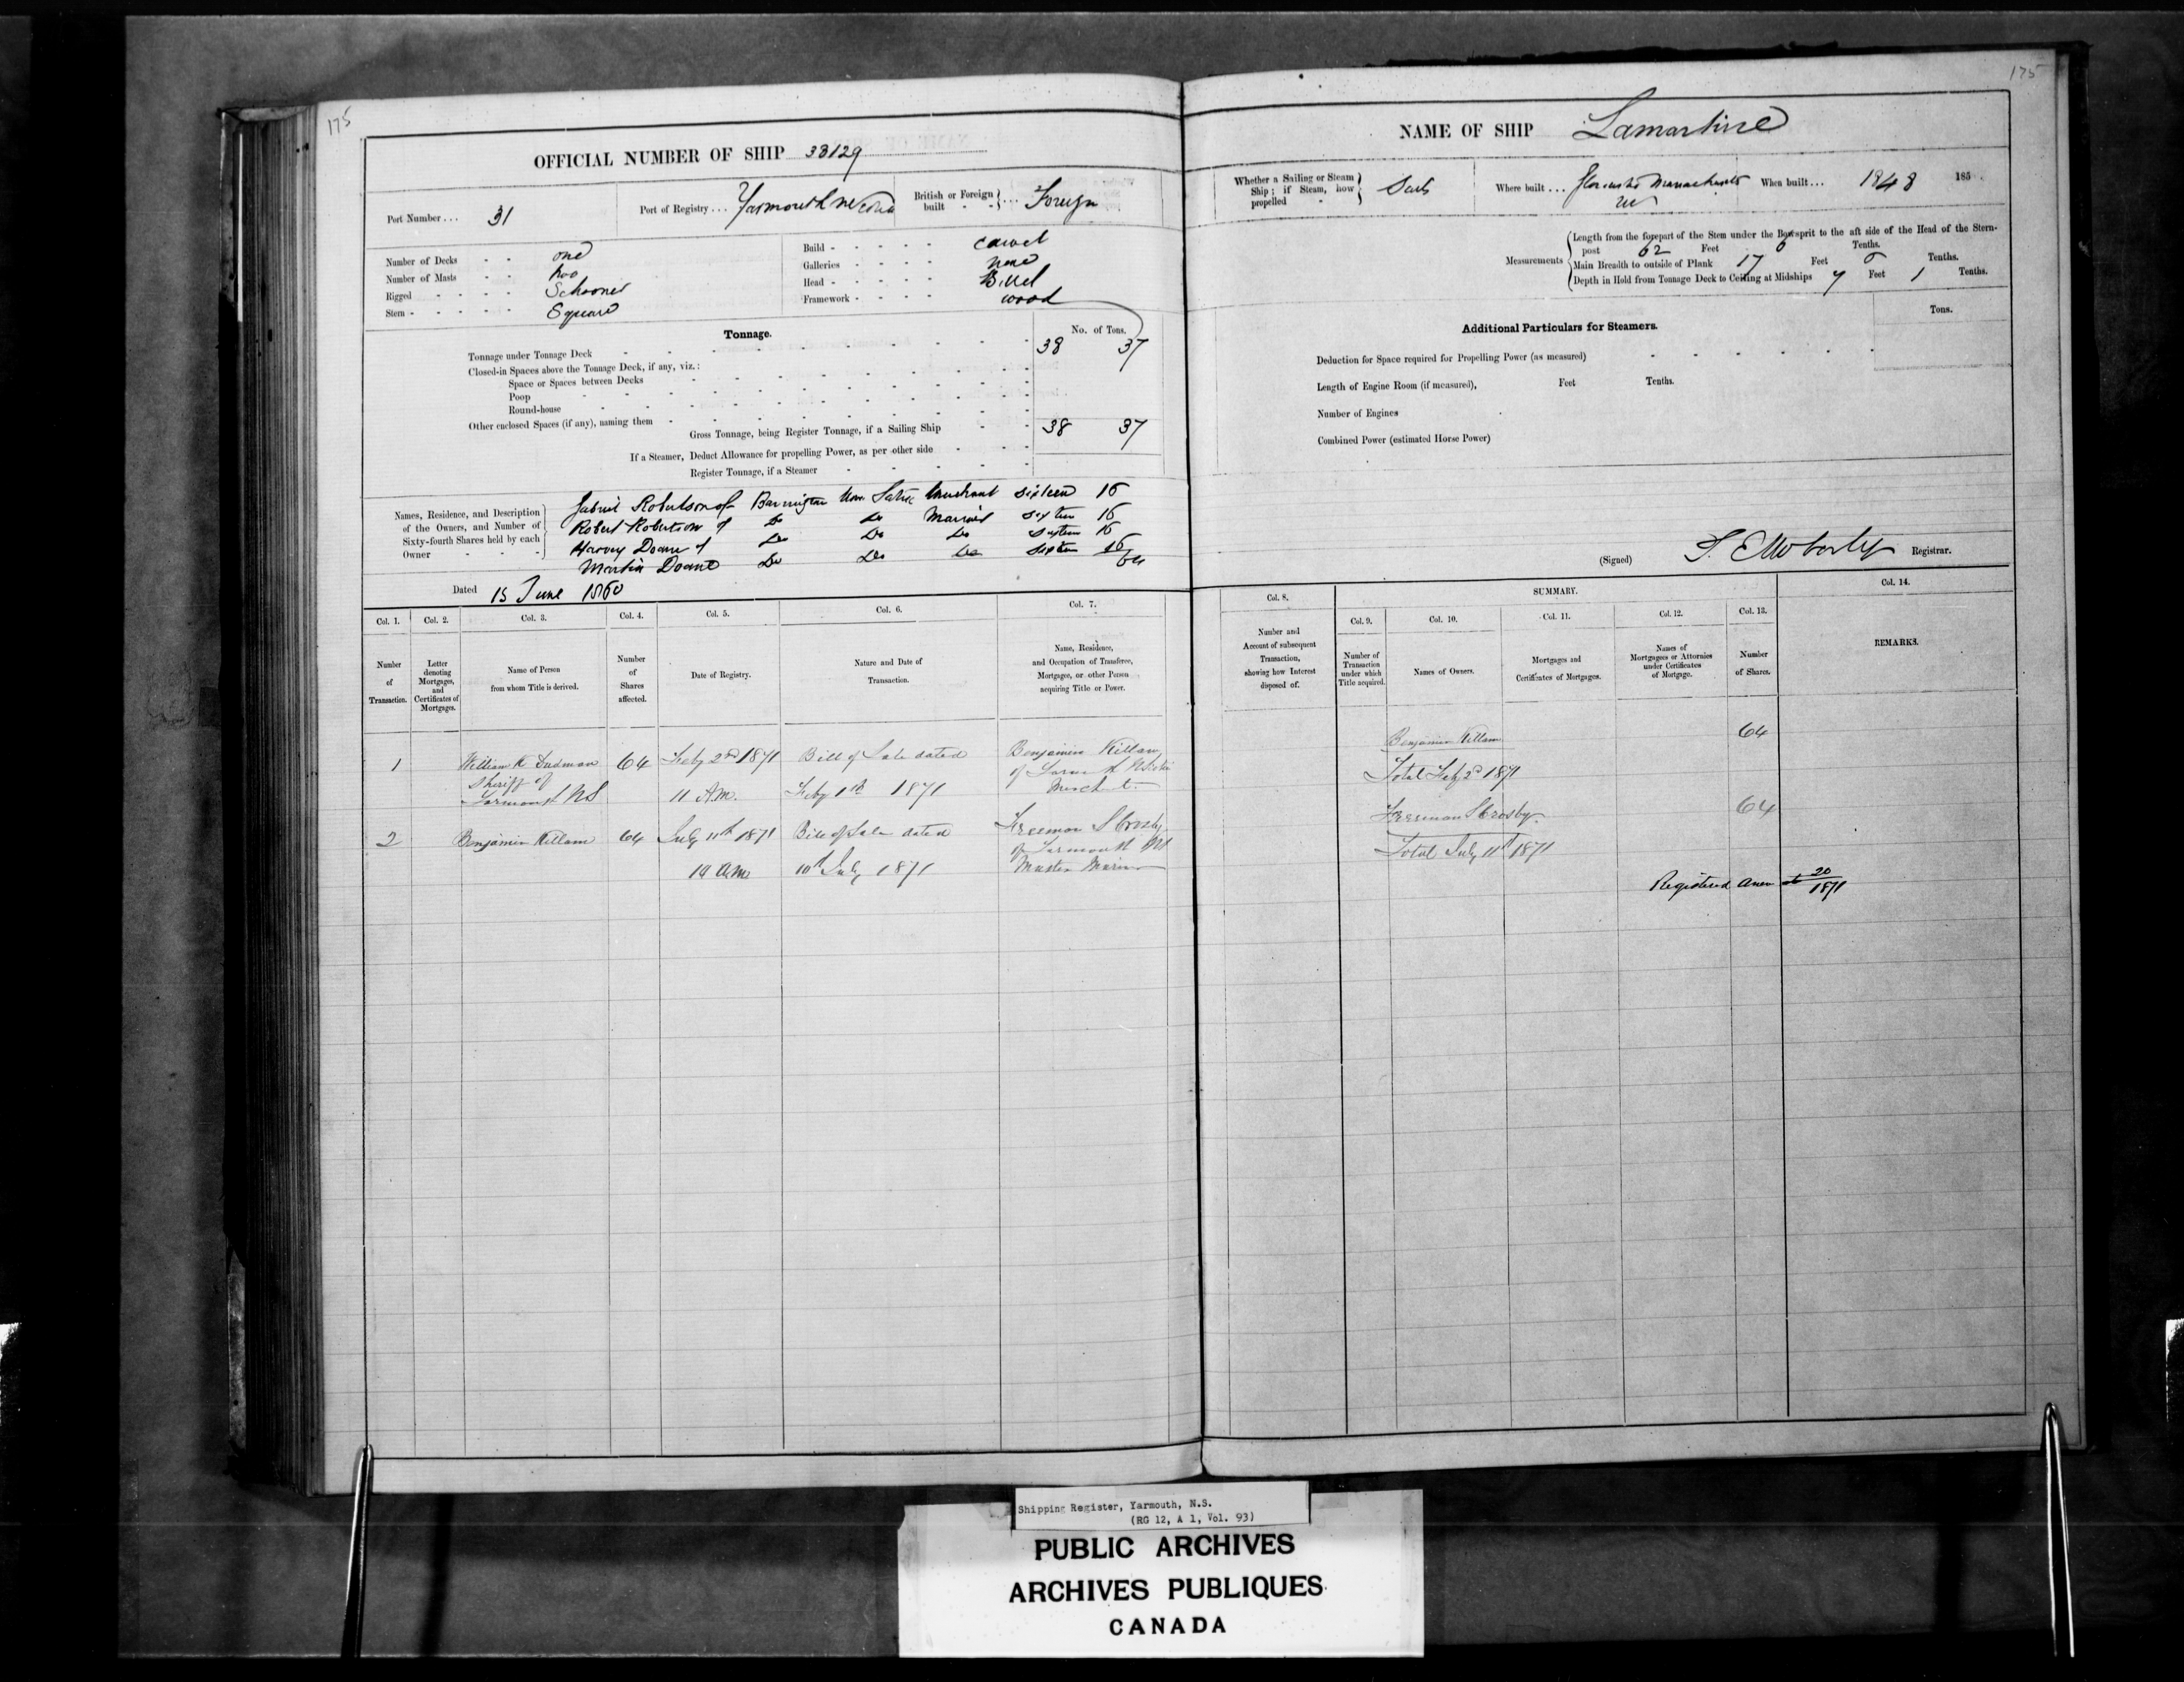 175
OFFICIAL NUMBER OF SHIP 38129
Port Number ... 31
Port of Registry ... Yarmouth
British or Foreign built ... Foreign
Number of Decks - - one
Number of Masts - - two
Rigged - - - - Schooner
Stern - - - - - Square
Build - - - - - Carvel
Galleries - - - - none
Head - - - - - Billet
Framework - - - - wood
Tonnage.
No. of Tons.
Tonnage under Tonnage Deck 38 37
Closed-in Spaces above the Tonnage Deck, if any, viz.:
Space or Spaces between Decks
Poop
Round-house
Other enclosed Spaces (if any), naming them
Gross Tonnage, being Register Tonnage, if a Sailing Ship 38 37
If a Steamer, Deduct Allowance for propelling Power, as per other side
Register Tonnage, if a Steamer
Names, Residence, and Description of the Owners, and Number of Sixty-fourth Shares held by each Owner
Gabriel Robertson of Barrington Merchant Sixteen 16
Robert Robertson of Do Do Sixteen 16
Harvey Doane of Do Do Do Sixteen 16
Martin Doane Do Do Do Sixteen 16
64
Dated 15 June 1860
Col. 1. Col. 2. Col. 3. Col. 4. Col. 5. Col. 6. Col. 7.
Number of Transaction.
Letter denoting Mortgages, and Certificates of Mortgages.
Name of Person from whom Title is derived.
Number of Shares affected.
Date of Registry.
Nature and Date of Transaction.
Name, Residence, and Occupation of Transferee, Mortgagee, or other Person acquiring Title or Power.
1 William K Dudman 64 Feby 2nd 1871 Bill of Sale dated Benjamin Killam
Sheriff of Yarmouth NS 11 A.M. Feby 1st 1871 of Yarmouth
2 Benjamin Killam 64 July 11th 1871 Bill of Sale dated Freeman S Crosby
of Yarmouth NS
10 a.m. 10th July 1871 Master Mariner
175
NAME OF SHIP Lamartine
Whether a Sailing or Steam Ship; if Steam, how propelled
Where built ... Massachusetts
When built ... 1848 185
Measurements
Length from the forepart of the Stem under the Bowsprit to the aft side of the Head of the Sternpost 62 Feet 6 Tenths.
Main Breadth to outside of Plank 17 Feet Tenths.
Depth in Hold from Tonnage Deck to Ceiling at Midships 7 Feet 1 Tenths.
Additional Particulars for Steamers.
Tons.
Deduction for Space required for Propelling Power (as measured)
Length of Engine Room (if measured), Feet Tenths.
Number of Engines
Combined Power (estimated Horse Power)
(Signed) Registrar.
Col. 8. SUMMARY. Col. 14.
Col. 9. Col. 10. Col. 11. Col. 12. Col. 13.
Number and Account of subsequent Transaction, showing how Interest disposed of.
Number of Transaction under which Title acquired.
Names of Owners.
Mortgages and Certificates of Mortgages.
Names of Mortgagees or Attornies under Certificates of Mortgage.
Number of Shares.
REMARKS.
Benjamin Killam 64
Total Feby 2d 1871
Freeman S Crosby 64
Total July 11th 1871
Registered anew 20/1871
Shipping Register, Yarmouth, N.S.
(RG 12, A 1, Vol. 93)
PUBLIC ARCHIVES
ARCHIVES PUBLIQUES
CANADA